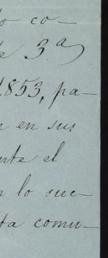 o co-
e 3.ª)
1853, pa-
n en sus
nte el
n lo suc-
ta comu-